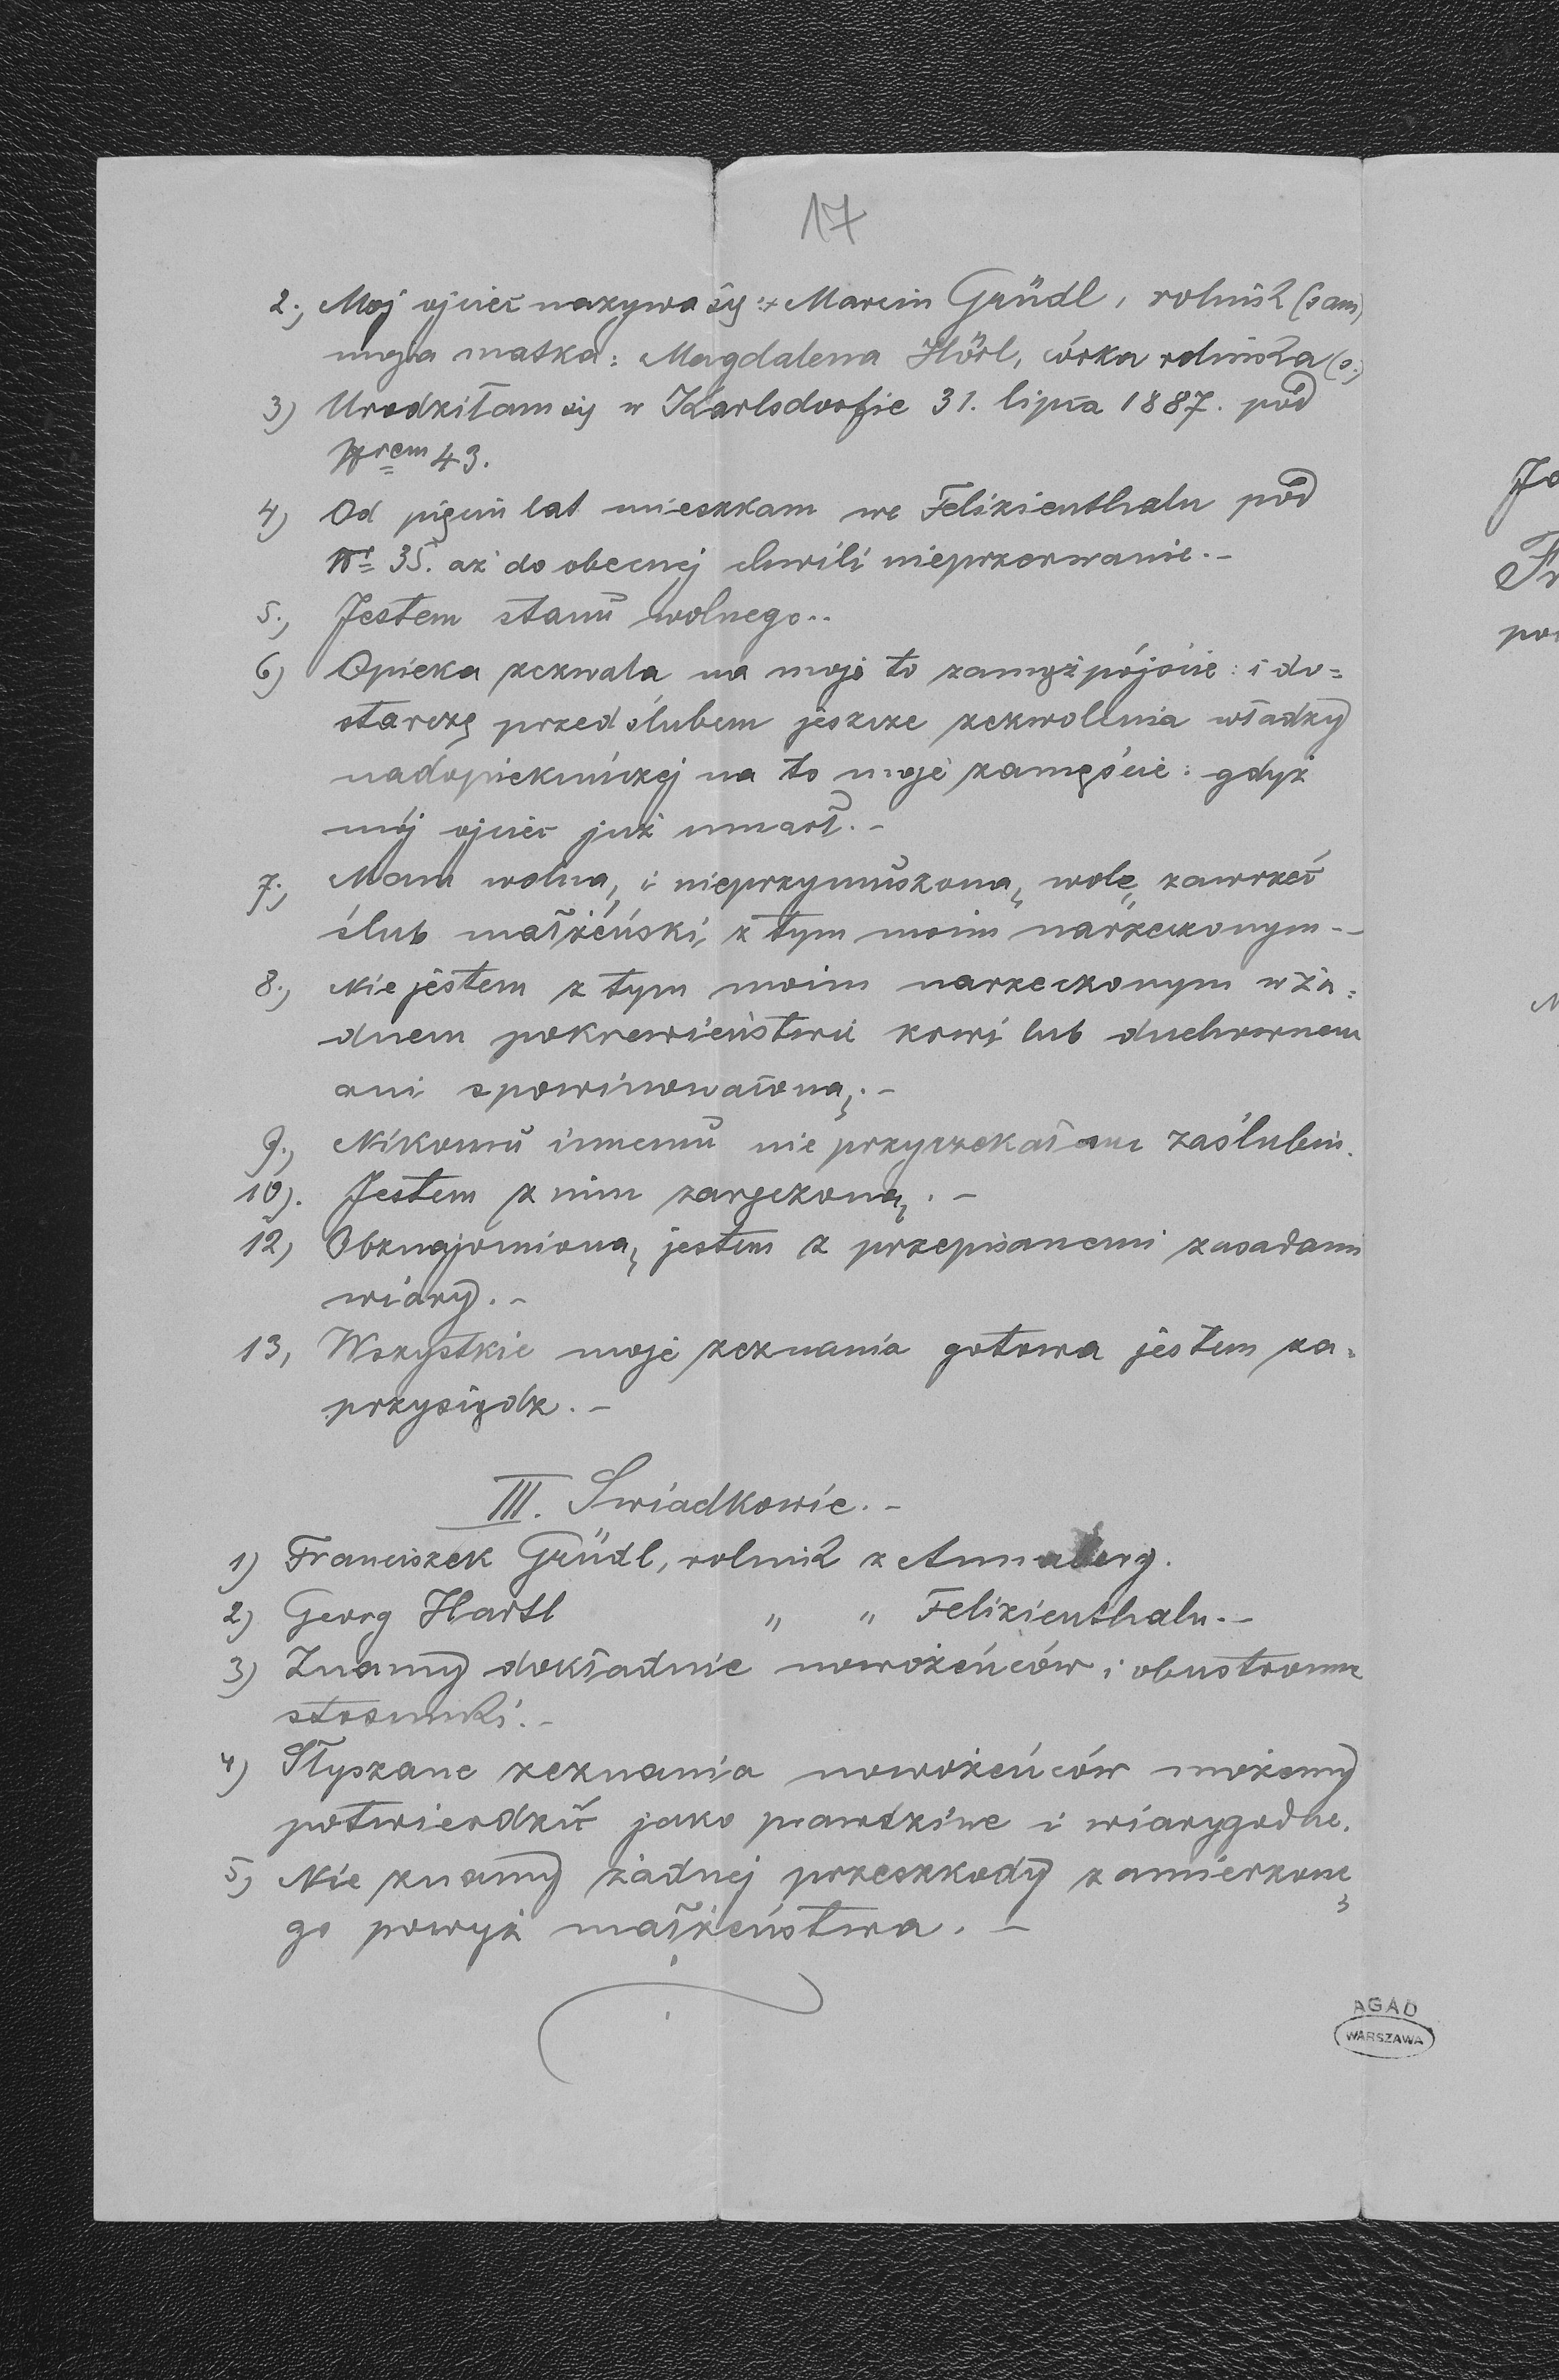 17
2., Moj ojciec nazywa się :+ Marcin Gründl, rolnik (sam)
moja matka: Magdalena Hörl, córka rolnika (s.)
3) Urodziłam się w Karlsdorfie 31. lipca 1887. pod
Nrem 43.
4) Od pięciu lat mieszkam we Felizienthalu pod
Nr 35. aż do obecnej chwili nieprzerwanie.-
5., Jestem stanu wolnego..
6) Opieka zezwala na moje to zamążpójście: i do=
starczę przed ślubem jeszcze zezwolenia władzy
nadopiekuńczej na to moje zamęście: gdyż
mój ojciec już umarł.-
7., Mam wolną, i nieprzymuszoną wolę zawrzeć
ślub małżeński, z tym moim narzeczonym.-
8., Nie jestem z tym moim narzeczonym w ża=
dnem pokrewieństwie krwi lub duchownem
ani spowinowaconą.-
9., Nikomu innemu nie przyrzekałam zaślubin.
10). Jestem z nim zaręczoną.-
12, Obznajomioną jestem z przepisanemi zasadami
wiary.-
13, Wszystkie moje zeznania gotowa jestem za=
przysiądz.-
III. Swiadkowie.-
1) Franciszek Gründl, rolnik z Annaberg.
2) Georg Hartl " " Felizienthalu.-
3) Znamy dokładnie nowożeńców i obustronne
stosunki.-
4) Słyszane zeznania nowożeńców możemy
potwierdzić jako prawdziwe i wiarygodne.
5, Nie znamy żadnej przeszkody zamierzone
go powyż małżeństwa.-
AGAD
WARSZAWA
Fr